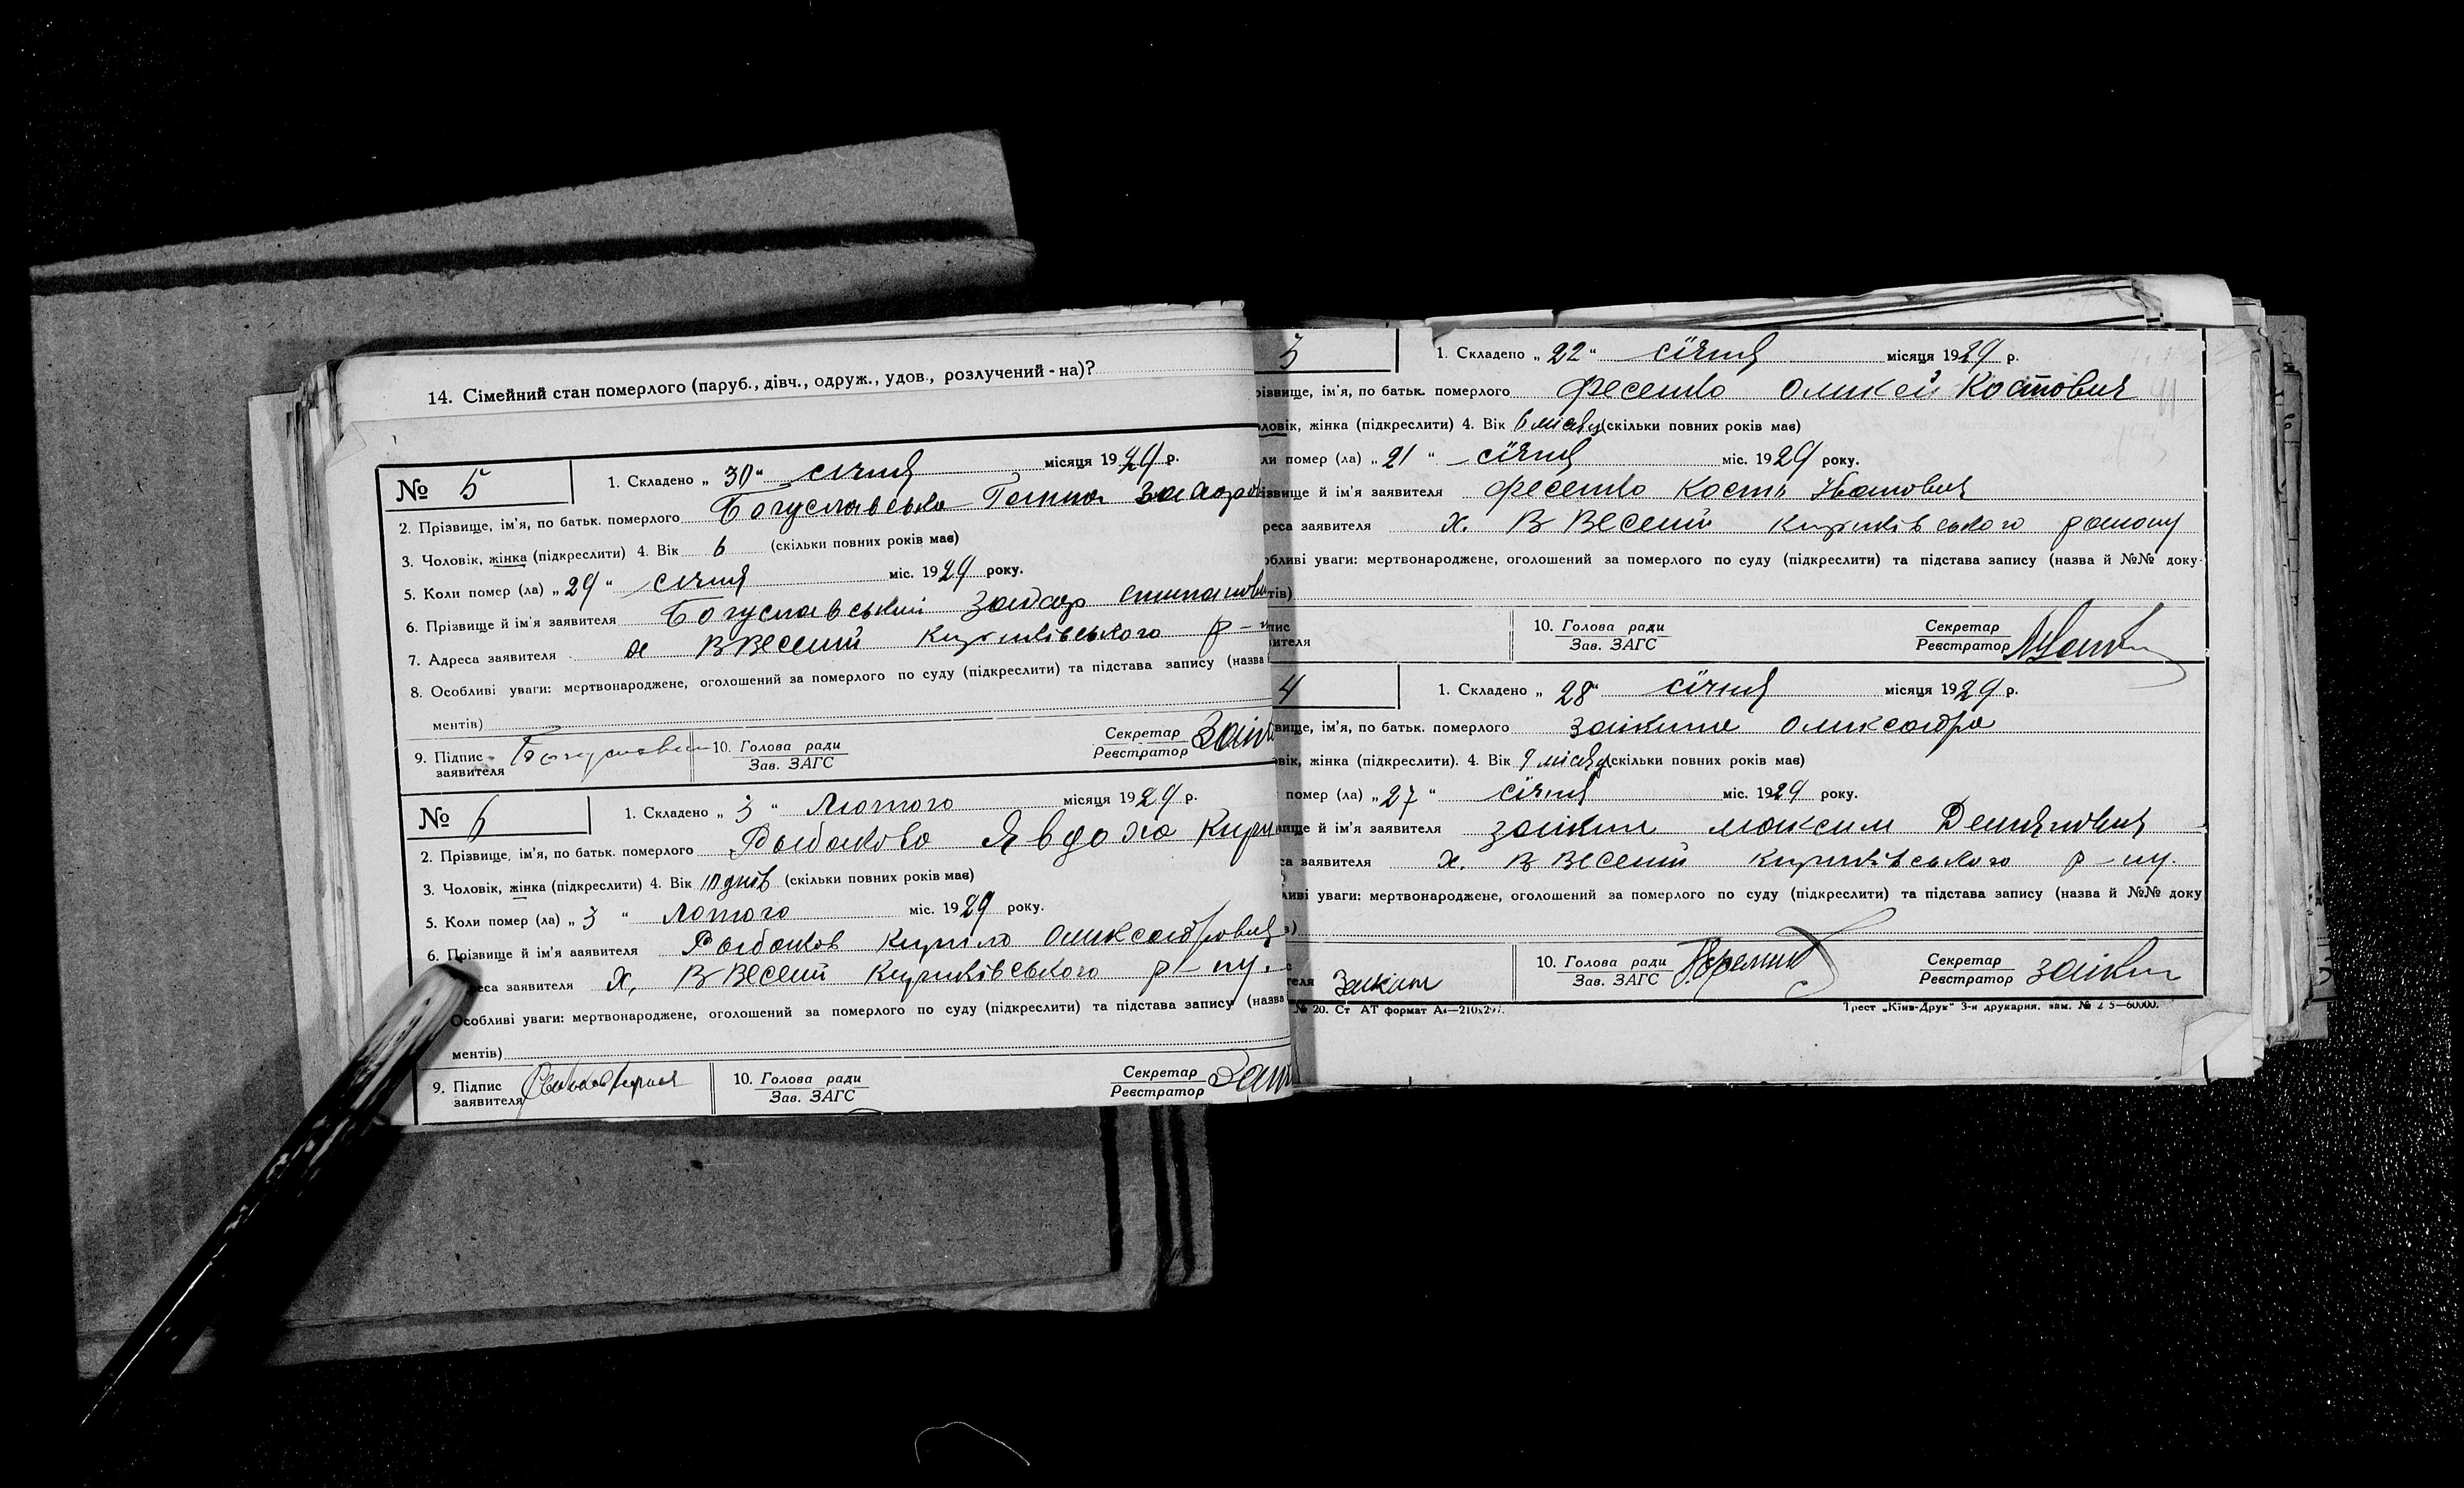 14. Сімейний стан померлого (паруб., дівч., одруж., удов., розлучений-на)?
№ 5 1. Складено „ 30 “ січня місяця 1929 р.
2. Прізвище, ім'я, по батьк. померлого Богуславська Ганна
3. Чоловік, жінка (підкреслити) 4. Вік 6 (скільки повних років має)
5. Коли помер (ла) „ 29 “ січня міс. 1929 року.
6. Прізвище й ім'я заявителя Богуславський Захар
7. Адреса заявителя х ВВеселий р-
8. Особливі уваги: мертвонароджене, оголошений за померлого по суду (підкреслити) та підстава запису (назва
ментів)
9. Підпис заявителя 10. Голова ради Зав. ЗАГС Секретар Реєстратор
№ 6 1. Складено „ 3 “ Лютого місяця 1929 р.
2. Прізвище, ім'я, по батьк. померлого Рыбакова Явдоха
3. Чоловік, жінка (підкреслити) 4. Вік 10 днів (скільки повних років має)
5. Коли помер (ла) „ 3 “ Лютого міс. 1929 року.
6. Прізвище й ім'я заявителя Рыбаков Кирило Олександрович
еса заявителя х. В Веселий р-ну.
Особливі уваги: мертвонароджене, оголошений за померлого по суду (підкреслити) та підстава запису (назва
ментів)
9. Підпис заявителя 10. Голова ради Зав. ЗАГС Секретар Реєстратор
3 1. Складено „ 22 “ січня місяця 1929 р.
різвище, ім'я, по батьк. померлого Фесенко Олисей Костович
ловік, жінка (підкреслити) 4. Вік 6 місяц (скільки повних років має)
ли помер (ла) „ 21 “ січня міс. 1929 року.
ізвище й ім'я заявителя Фесенко Кость Іванович
реса заявителя х. В Веселий району
обливі уваги: мертвонароджене, оголошений за померлого по суду (підкреслити) та підстава запису (назва й №№ доку-
тів)
пис вителя 10. Голова ради Зав. ЗАГС Секретар Реєстратор
4 1. Складено „ 28 “ січня місяця 1929 р.
вище, ім'я, по батьк. померлого Заікина Олександра
овік, жінка (підкреслити). 4. Вік 9 місяц (скільки повних років має)
помер (ла) „ 27 “ січня міс. 1929 року.
вище й ім'я заявителя Заікин Максим Демянович
са заявителя х. В Веселий р-ну.
ливі уваги: мертвонароджене, оголошений за померлого по суду (підкреслити) та підстава запису (назва й №№ доку
в)
теля Заикин 10. Голова ради Зав. ЗАГС Секретар Реєстратор Заікин
№ 20. Ст АТ формат А4—210х297. Трест „Київ-Друк“ 3-я друкарня, зам. № 2 5—60000.